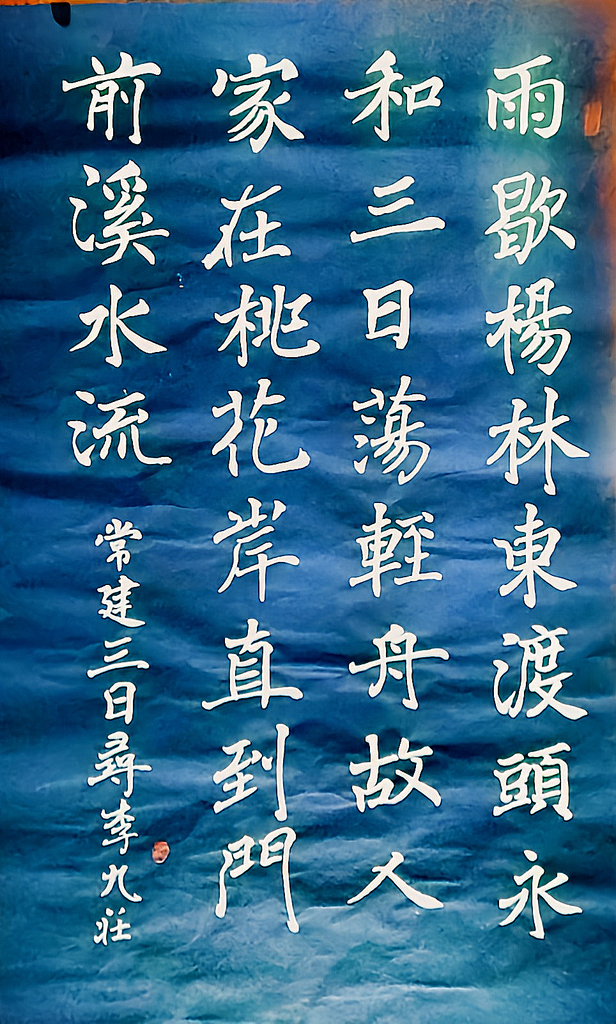 雨歇楊林東渡頭永
和三日蕩輕舟故人
家在桃花岸直到門
前溪水流
常建三日尋李九莊